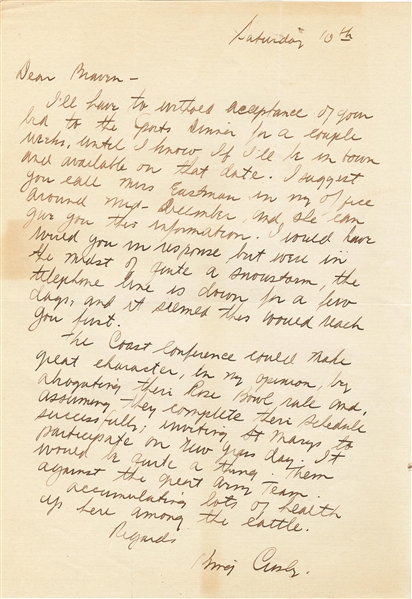 Saturday 10th
Dear Braven -
I'll have to withold acceptance of your
bid to the Sports Dinner for a couple
weeks, until I know if I'll be in town
and available on that date. I suggest
you call Miss Eastman in my office
around mid-December, and she can
give you this information. I would have
wired you in response but we're in
the midst of quite a snowstorm, the
telephone line is down for a few
days, and it seemed this would reach
you first.
The Coast Conference could make
great character, in my opinion, by
abrogating their Rose Bowl rule and,
assuming they complete their schedule
successfully, inviting St Marys to
participate on New Years day. It
would be quite a thing. Them
against the great Army Team.
accumulating lots of health
up here among the cattle.
Regards
Bing Crosby.